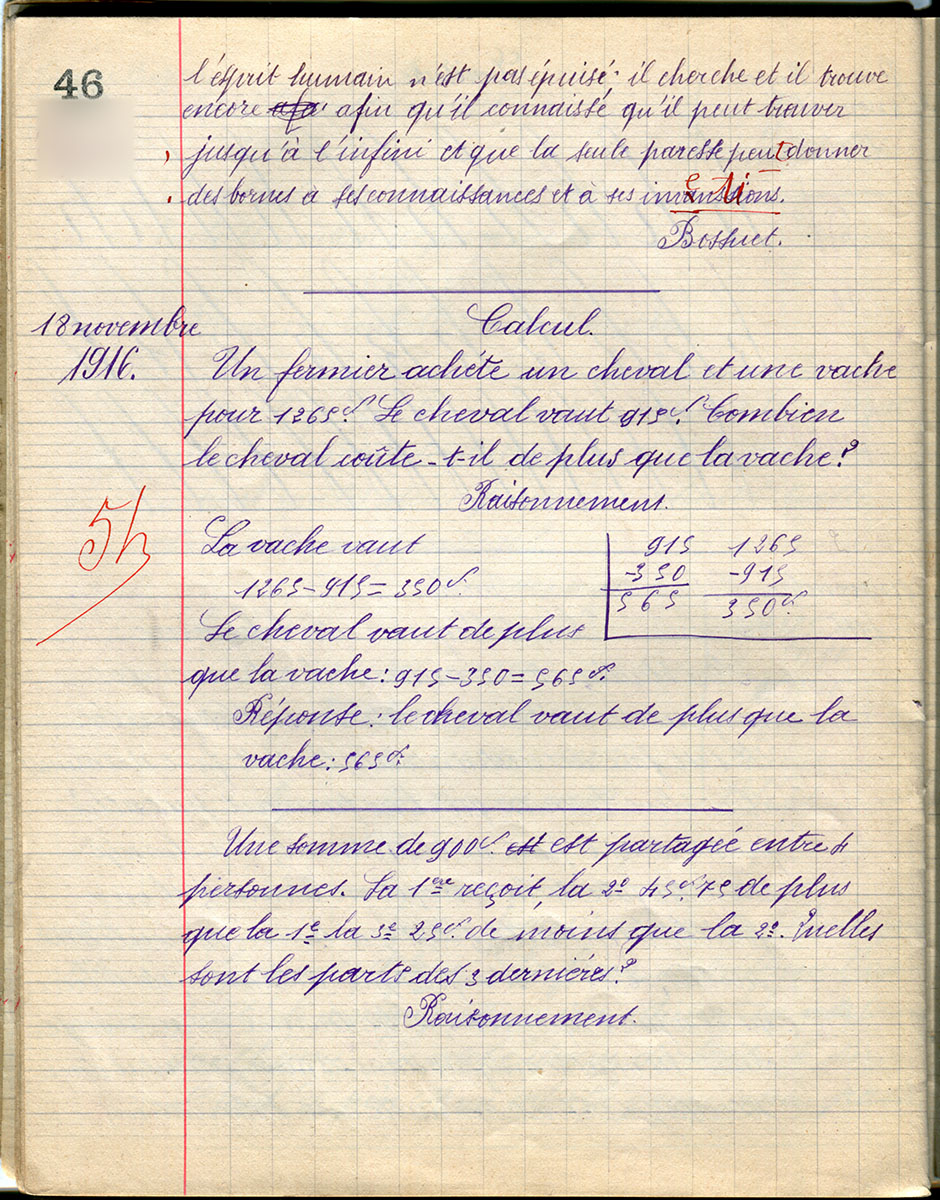 46
l'esprit humain n'est pas épuisé; il cherche et il trouve
encore afin qu'il connaisse qu'il peut trouver
jusqu'à l'infini et que la seule paresse peut donner
des bornes a ses connaissances et à ses inventions.
Bossuet.
18 novembre
1916.
Calcul.
Un fermier achète un cheval et une vache
pour 1265f. Le cheval vaut 915f. Combien
le cheval coûte-t-il de plus que la vache?
Raisonnement.
5h
La vache vaut
1265-915=350f.
915 1265
-350 -915
565 350f.
Le cheval vaut de plus
que la vache: 915-350=565f.
Réponse: le cheval vaut de plus que la
vache: 565f.
Une somme de 900f. est est partagée entre 4
personnes. La 1ere reçoit, la 2e 45f.75 de plus
que la 1e la 3e 25f. de moins que la 2e. Quelles
sont les parts des 3 dernières?
Raisonnement.